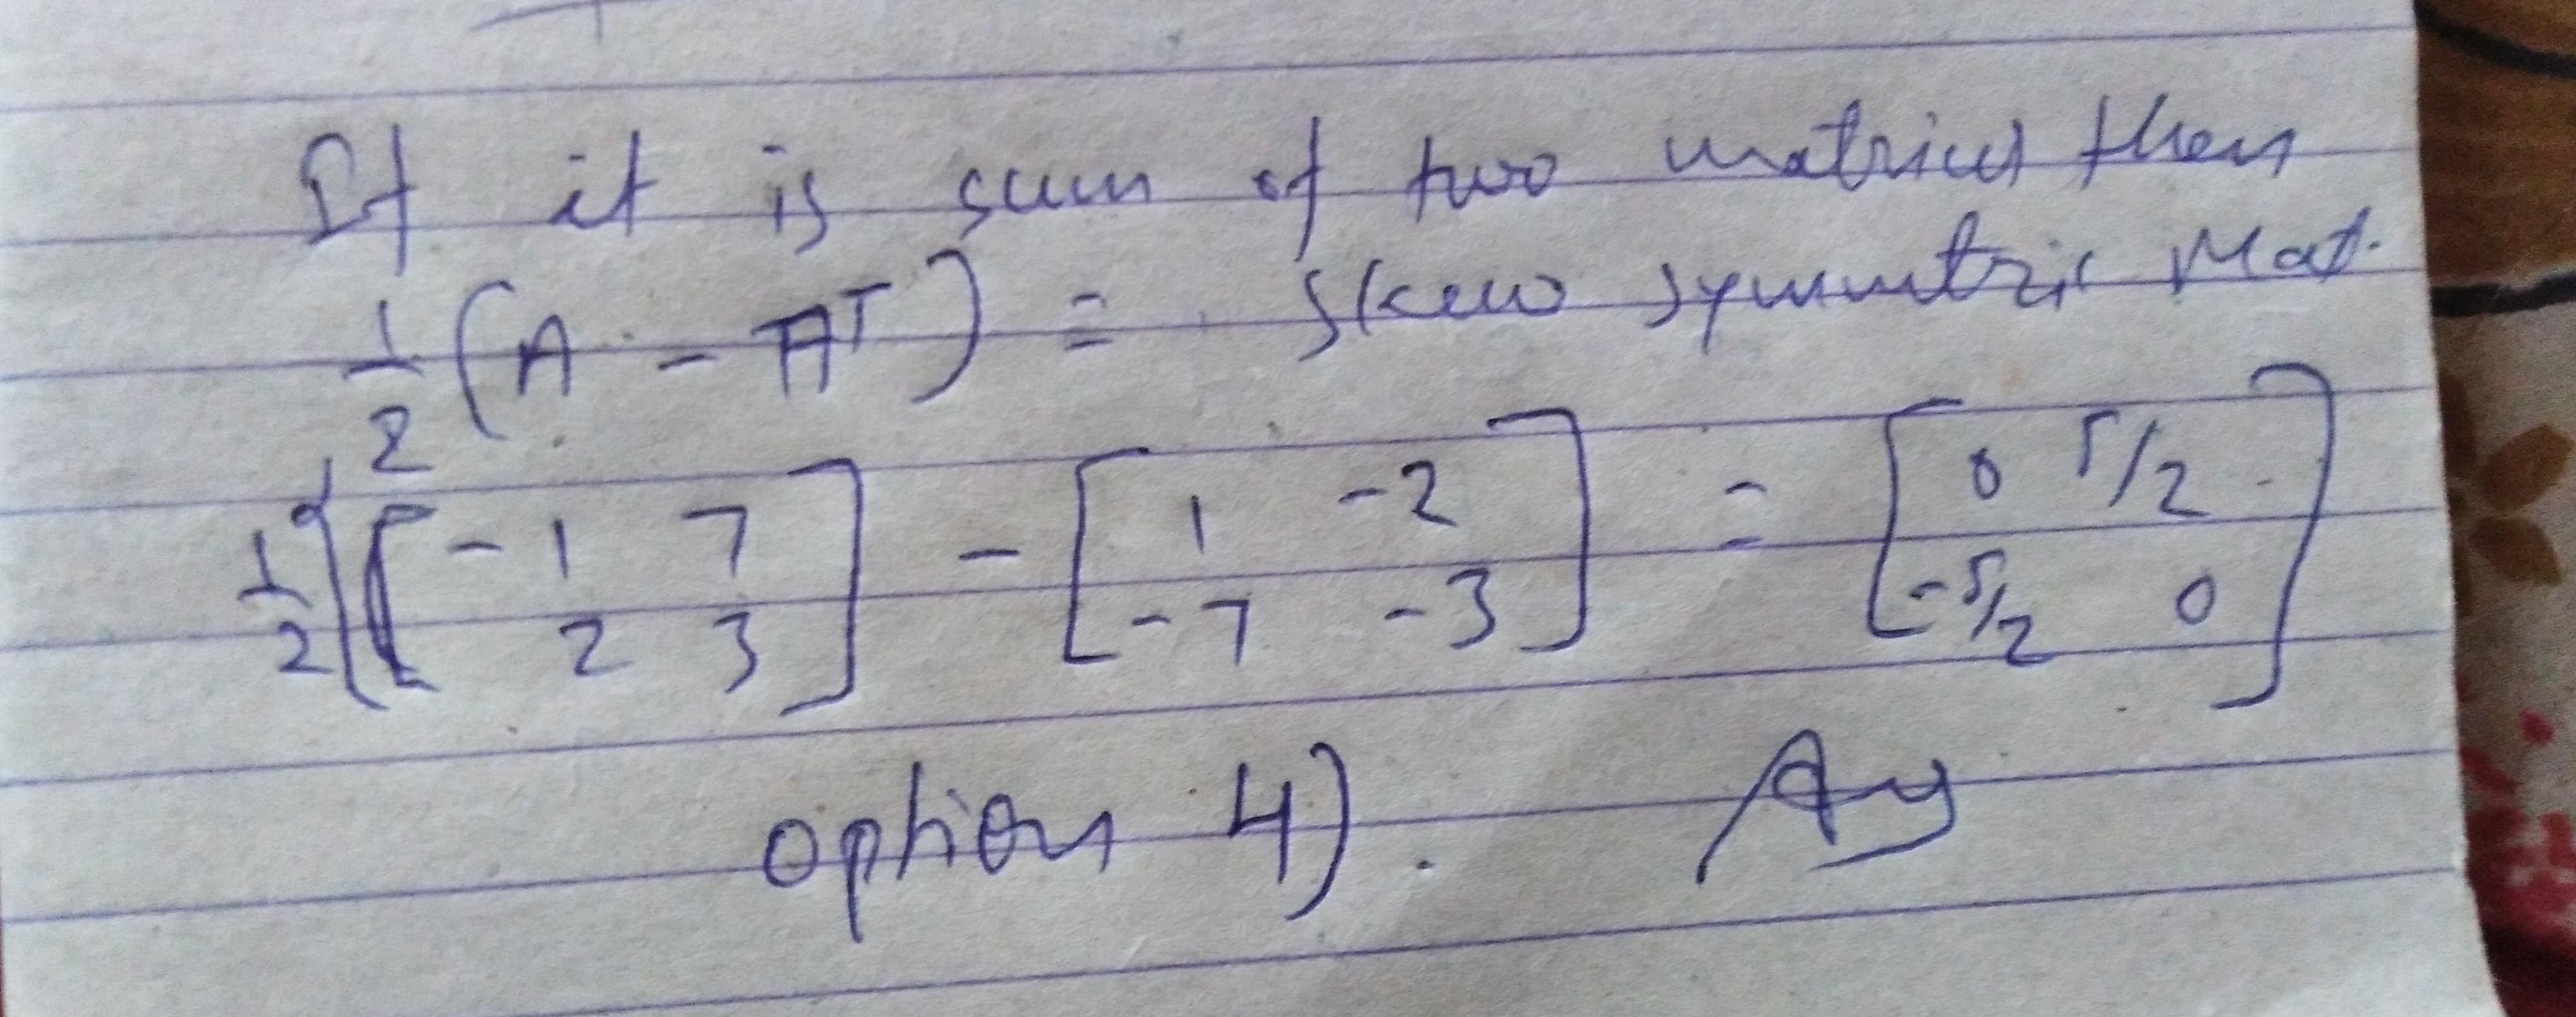 If it is sum of two matrices then
1/2 (A - Aᵀ) = skew symmetric Mat.
1/2 {[ -1 7 ; 2 3 ] - [ 1 -2 ; -7 -3 ] = [ 0 5/2 ; -5/2 0 ]
option 4). Ans